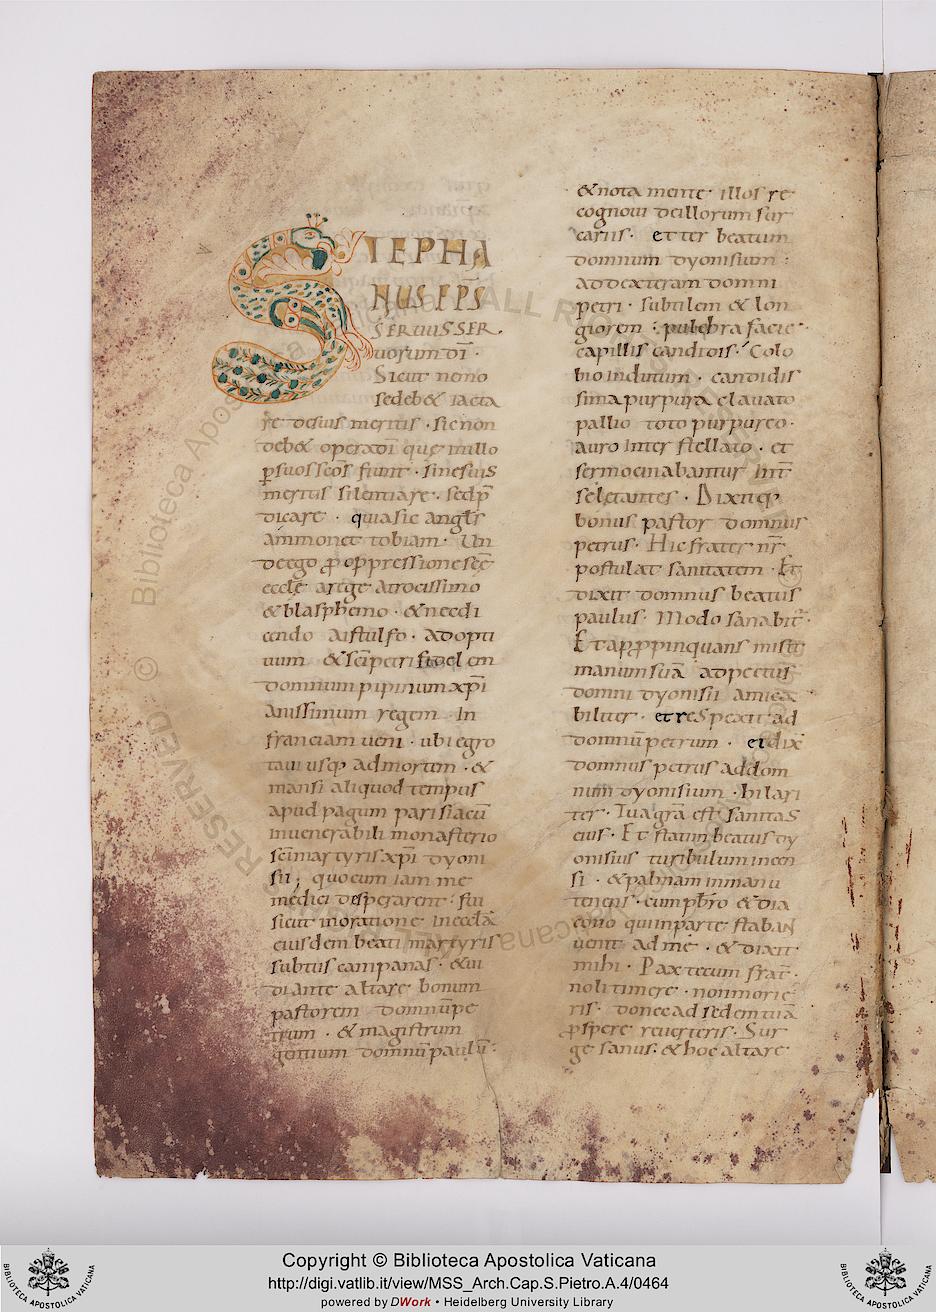 STEPHA
NUS EPS
SERUUS SER
uorum dī ·
Sicut nemo
se debet iacta
re de suis meritis · sic non
debet opera dī que in illo
ꝑ suos scōs fiunt · sine suis
meritis silentiare · sed p̄
dicare · quia sic angl̄s
ammonet tobiam · Un
de ego ꝓ oppressione scē
eccłe a rege atrocissimo
& blasphemo · & nec di
cendo aistulfo · ad opti
mum & scī petri fidelem
domnum pipinum xp̄i
anissimum regem · In
franciam ueni · ubi egro
taui usq; ad mortem · &
mansi aliquod tempus
apud pagum parisiacū
in uenerabili monasterio
scī martyris xp̄i dyoni
sii; quo cum iam me
medici desperarent · fui
sicut in oratione in eccłā
eiusdem beati martyris
subtus campanas · & ui
di ante altare bonum
pastorem domnū pe
trum · & magistrum
gentium domnū paulū ·
& nota mente · illos re
cognoui de illorum sur
cariis · et ter beatum
domnum dyonisium :
ad dexteram domni
petri · subtilem & lon
giorem · pulchra facie ·
capillis candidis · Colo
bio indutum · candidis
sima purpura clauato
pallio toto purpureo ·
auro inter stellato · et
sermocinabantur int̄
se letantes · Dixitq;
bonus pastor domnus
petrus · Hic frater nr̄
postulat sanitatem · Et
dixit domnus beatus
paulus · Modo sanabit̄ ·
Et appropinquans misit
manum suā ad pectus
domni dyonisii amica
biliter · et respexit ad
domnū petrum · et dix̄
domnus petrus ad dom
num dyonisium · hilari
ter · Tua grā est sanitas
eius · Et statim beatus dy
onisius turibulum incen
si · & palmam in manu
tenens · cum pb̄ro & dia
cono qui in parte staban
uenit ad me · & dixit ·
mihi · Pax tecum frat̄ ·
noli timere · non morie
ris · donec ad sedem tuā
ꝓspere reuerteris · Sur
ge sanus · & hoc altare
Copyright © Biblioteca Apostolica Vaticana
http://digi.vatlib.it/view/MSS_Arch.Cap.S.Pietro.A.4/0464
powered by DWork • Heidelberg University Library